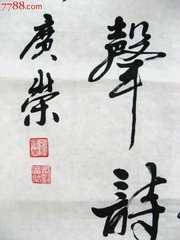 7788.com
聲詩
廣榮